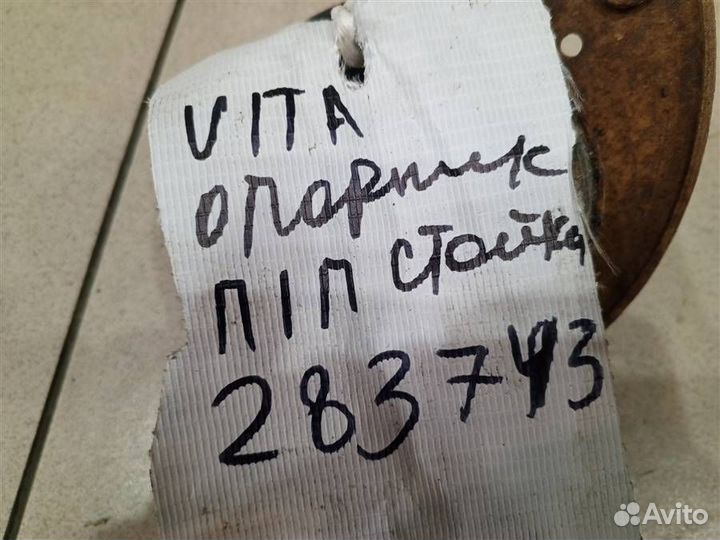 VITA
ОПОРНИК
П1П стойка
283743
Avito